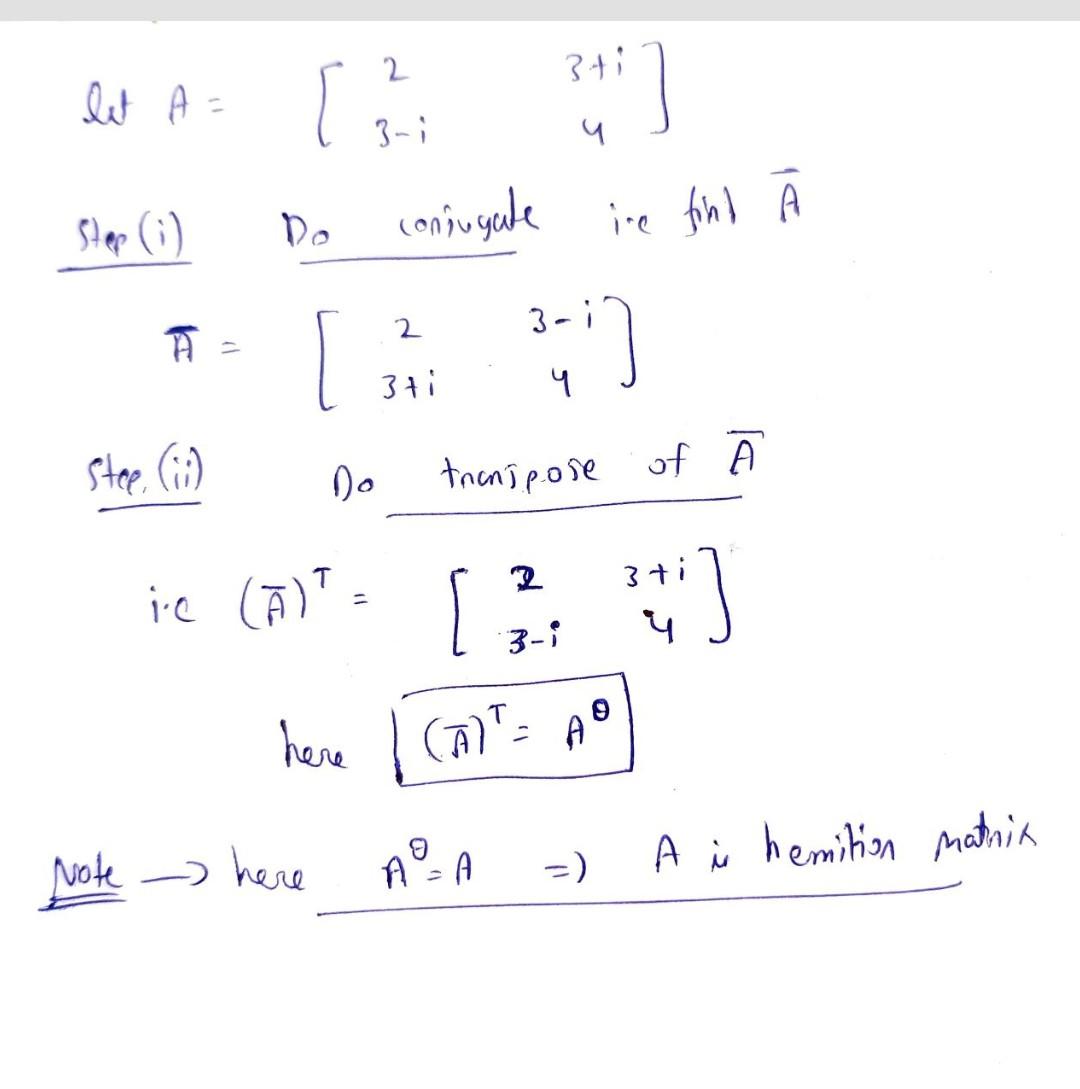 let A = [ 2 3+i
3-i 4 ]
Step (i) Do conjugate i.e find Ā
Ā = [ 2 3-i
3+i 4 ]
Step (ii) Do transpose of Ā
i.e (Ā)ᵀ = [ 2 3+i
3-i 4 ]
here (Ā)ᵀ = A^θ
Note → here A^θ = A => A is hemition matrix